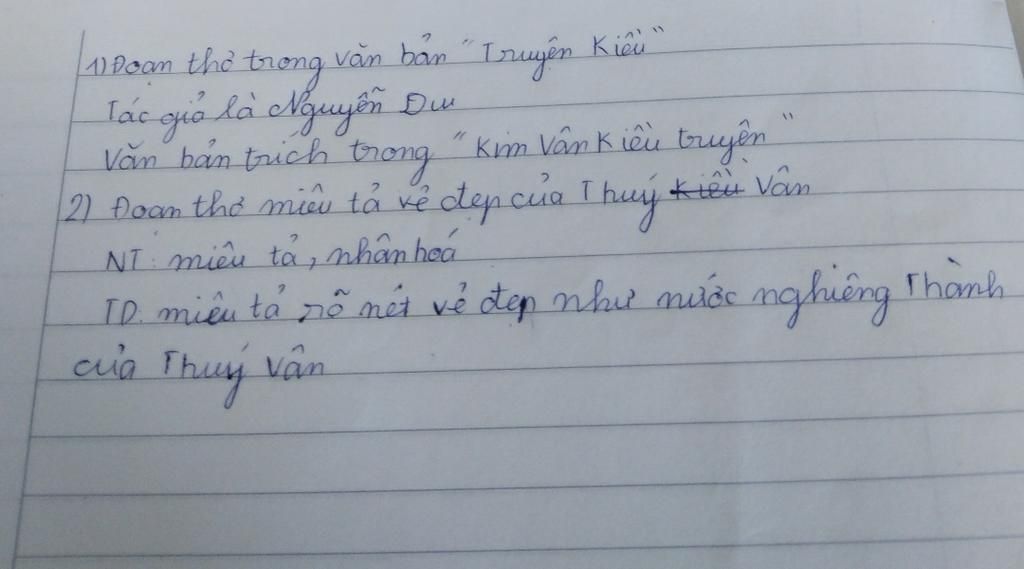 1) Đoạn thơ trong văn bản "Truyện Kiều"
Tác giả là Nguyễn Du
Văn bản trích trong "Kim Vân Kiều truyện"
2) Đoạn thơ miêu tả vẻ đẹp của Thuý Kiều Vân
NT: miêu tả, nhân hoá
TD: miêu tả rõ nét vẻ đẹp như nước nghiêng Thành
của Thuý Vân